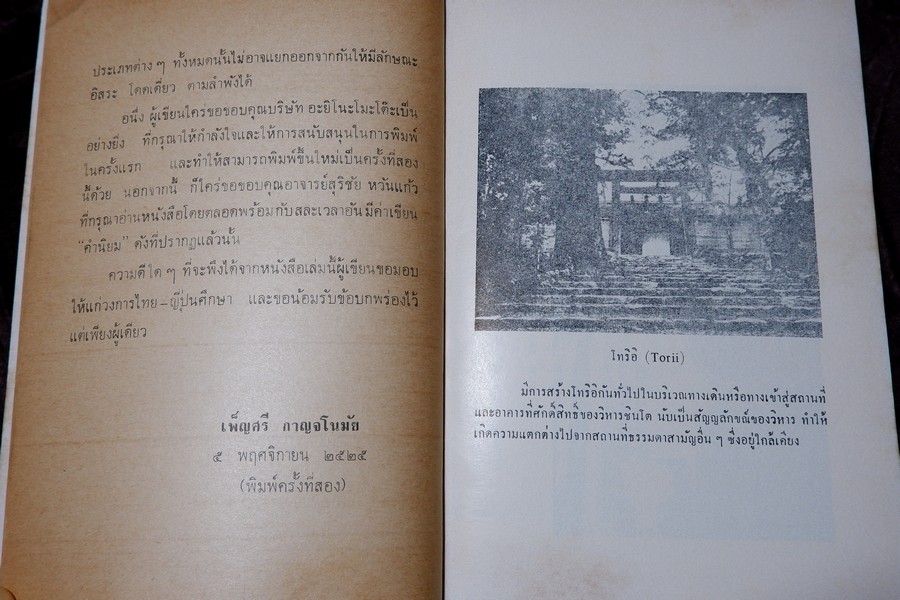 ประเภทต่าง ๆ ทั้งหมดนั้นไม่อาจแยกออกจากกันให้มีลักษณะ
อิสระ โดดเดี่ยว ตามลำพังได้
อนึ่ง ผู้เขียนใคร่ขอขอบคุณบริษัท อะยิโนะโมะโต๊ะเป็น
อย่างยิ่ง ที่กรุณาให้กำลังใจและให้การสนับสนุนในการพิมพ์
ในครั้งแรก และทำให้สามารถพิมพ์ขึ้นใหม่เป็นครั้งที่สอง
นี้ด้วย นอกจากนี้ ก็ใคร่ขอขอบคุณอาจารย์สุริชัย หวันแก้ว
ที่กรุณาอ่านหนังสือโดยตลอดพร้อมกับสละเวลาอันมีค่าเขียน
“คำนิยม” ดังที่ปรากฏแล้วนั้น
ความดีใด ๆ ที่จะพึงได้จากหนังสือเล่มนี้ผู้เขียนขอมอบ
ให้แก่วงการไทย–ญี่ปุ่นศึกษา และขอน้อมรับข้อบกพร่องไว้
แต่เพียงผู้เดียว
เพ็ญศรี กาญจโนมัย
๕ พฤศจิกายน ๒๕๒๕
(พิมพ์ครั้งที่สอง)
โทริอิ (Torii)
มีการสร้างโทริอิกันทั่วไปในบริเวณทางเดินหรือทางเข้าสู่สถานที่
และอาคารที่ศักดิ์สิทธิ์ของวิหารชินโต นับเป็นสัญญลักขณ์ของวิหาร ทำให้
เกิดความแตกต่างไปจากสถานที่ธรรมดาสามัญอื่น ๆ ซึ่งอยู่ใกล้เคียง